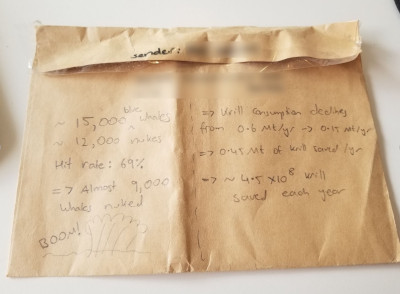 sender:
blue
~ 15,000 ^ whales
~ 12,000 nukes
Hit rate: 69%
=> Almost 9,000
whales nuked
BOOM!
=> Krill consumption declines
from 0.6 Mt/yr -> 0.15 Mt/yr
=> 0.45 Mt of krill saved/yr
=> ~ 4.5 x10⁸ krill
saved each year